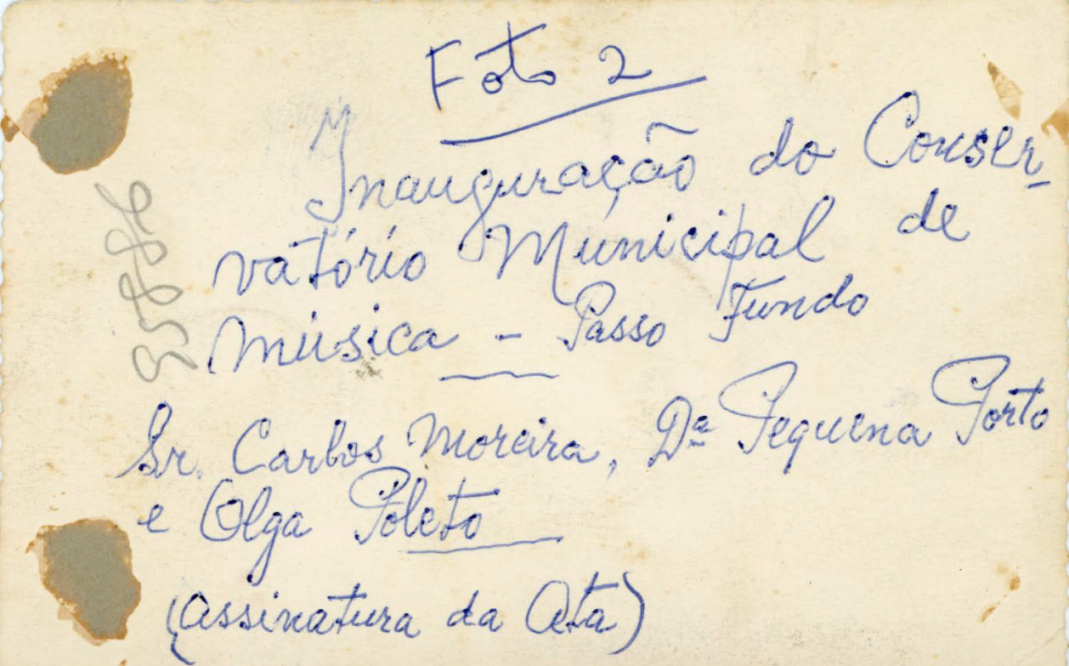 Foto 2
Inauguração do Conser-
vatório Municipal de
música - Passo Fundo
Sr. Carlos Moreira, Dª Pequena Porto
e Olga Poleto
(Assinatura da Ata)